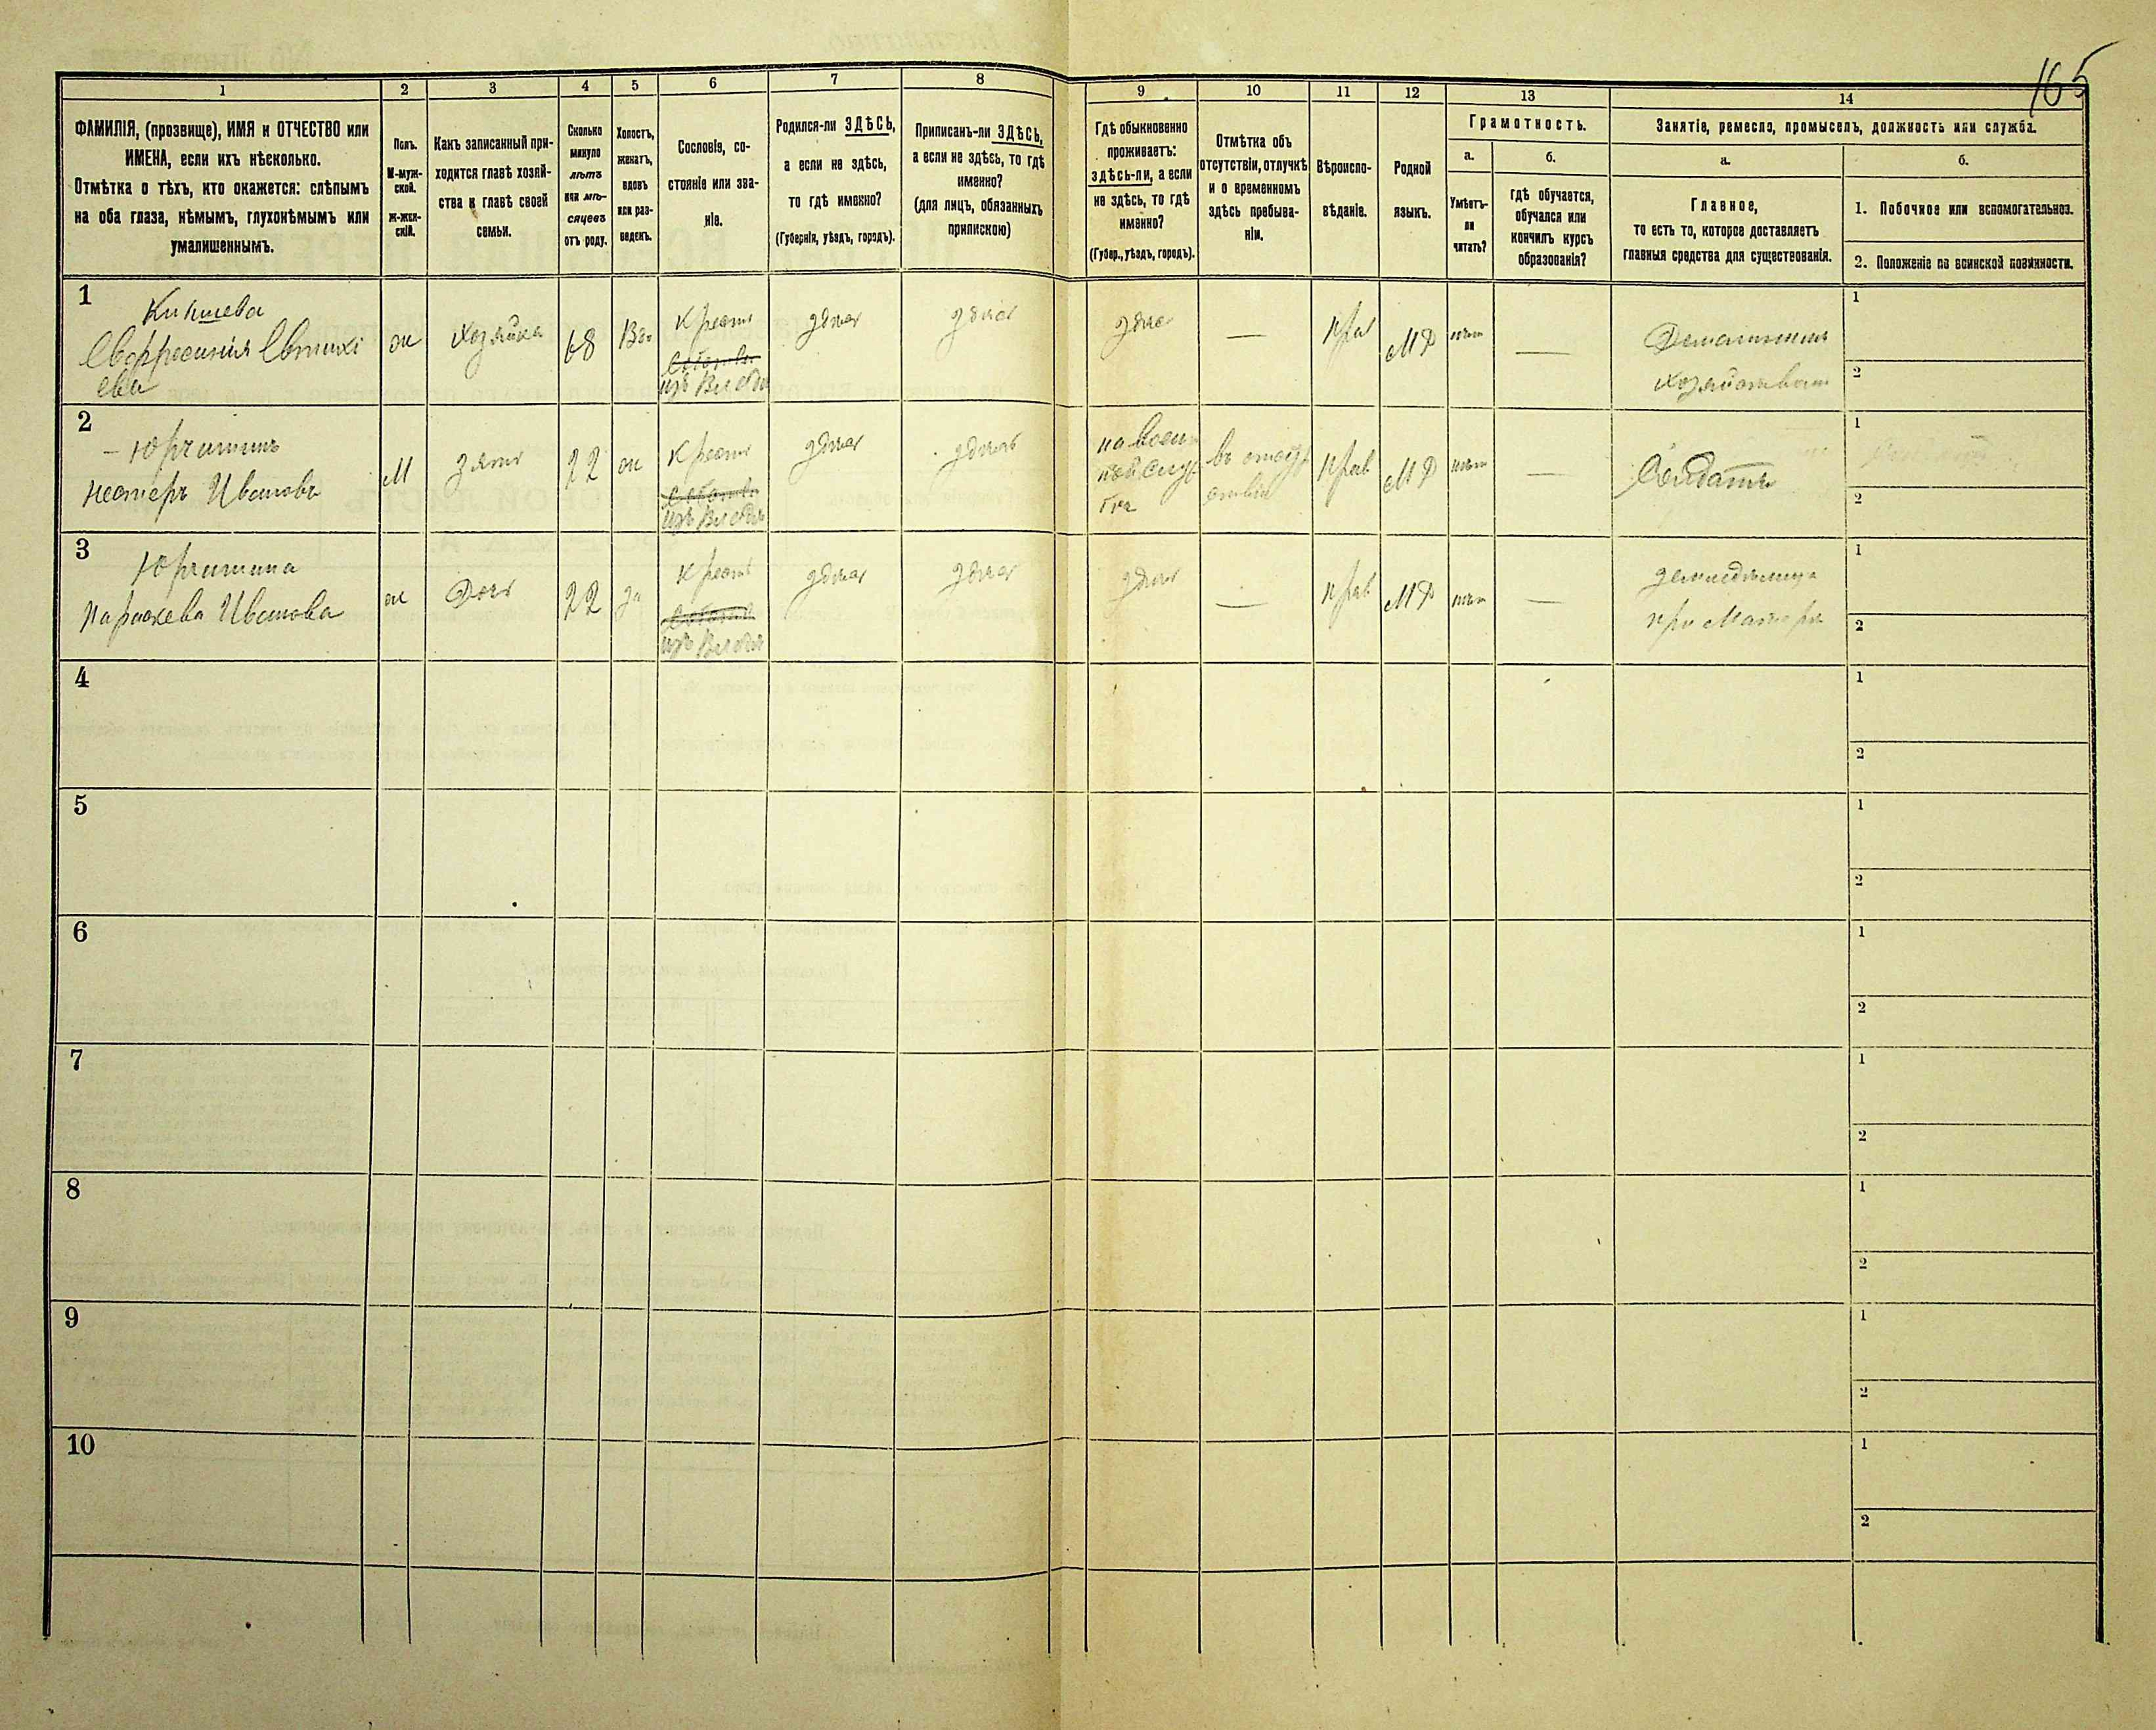 165
1
2
3
4
5
6
7
8
9
10
11
12
13
14
ФАМИЛІЯ, (прозвище), ИМЯ и ОТЧЕСТВО или
ИМЕНА, если ихъ нѣсколько.
Отмѣтка о тѣхъ, кто окажется: слѣпымъ
на оба глаза, нѣмымъ, глухонѣмымъ или
умалишеннымъ.
Полъ.
М-муж-
ской.
Ж-жен-
скій.
Какъ записанный при-
ходится главѣ хозяй-
ства и главѣ своей
семьи.
Сколько
минуло
лѣтъ
или мѣ-
сяцевъ
отъ роду.
Холостъ,
женатъ,
вдовъ
или раз-
веденъ.
Сословіе, со-
стояніе или зва-
ніе.
Родился-ли ЗДѢСЬ,
а если не здѣсь,
то гдѣ именно?
(Губернія, уѣздъ, городъ).
Приписанъ-ли ЗДѢСЬ,
а если не здѣсь, то гдѣ
именно?
(для лицъ, обязанныхъ
припискою)
Гдѣ обыкновенно
проживаетъ:
здѣсь-ли, а если
не здѣсь, то гдѣ
именно?
(Губер., уѣздъ, городъ).
Отмѣтка объ
отсутствіи, отлучкѣ
и о временномъ
здѣсь пребыва-
ніи.
Вѣроиспо-
вѣданіе.
Родной
языкъ.
Грамотность.
а.
Умѣетъ-
ли
читать?
б.
Гдѣ обучается,
обучался или
кончилъ курсъ
образованія?
Занятіе, ремесло, промыселъ, должность или служба.
а.
Главное,
то есть то, которое доставляетъ
главныя средства для существованія.
б.
1. Побочное или вспомогательное.
2. Положеніе по воинской повинности.
1
Евфросинія Евтихі
ева
ж
хозяйка
68
Вд.
Крест
изъ Влад
здѣсь
здѣсь
здѣсь
—
Прав
МР
нѣтъ
—
Домашнимъ
хозяйствомъ
1
2
2
Нестеръ Ивановъ
М
зять
22
ж
Крест
изъ Влад
здѣсь
здѣсь
на воен
ной служ
бѣ
въ отсут
ствіи
Прав
МР
нѣтъ
—
Солдатъ
1
2
3
Параскева Иванова
ж
Дочь
22
за
Крест
изъ Влад
здѣсь
здѣсь
здѣсь
—
Прав
МР
нѣтъ
—
при Матери
1
2
4
1
2
5
1
2
6
1
2
7
1
2
8
1
2
9
1
2
10
1
2